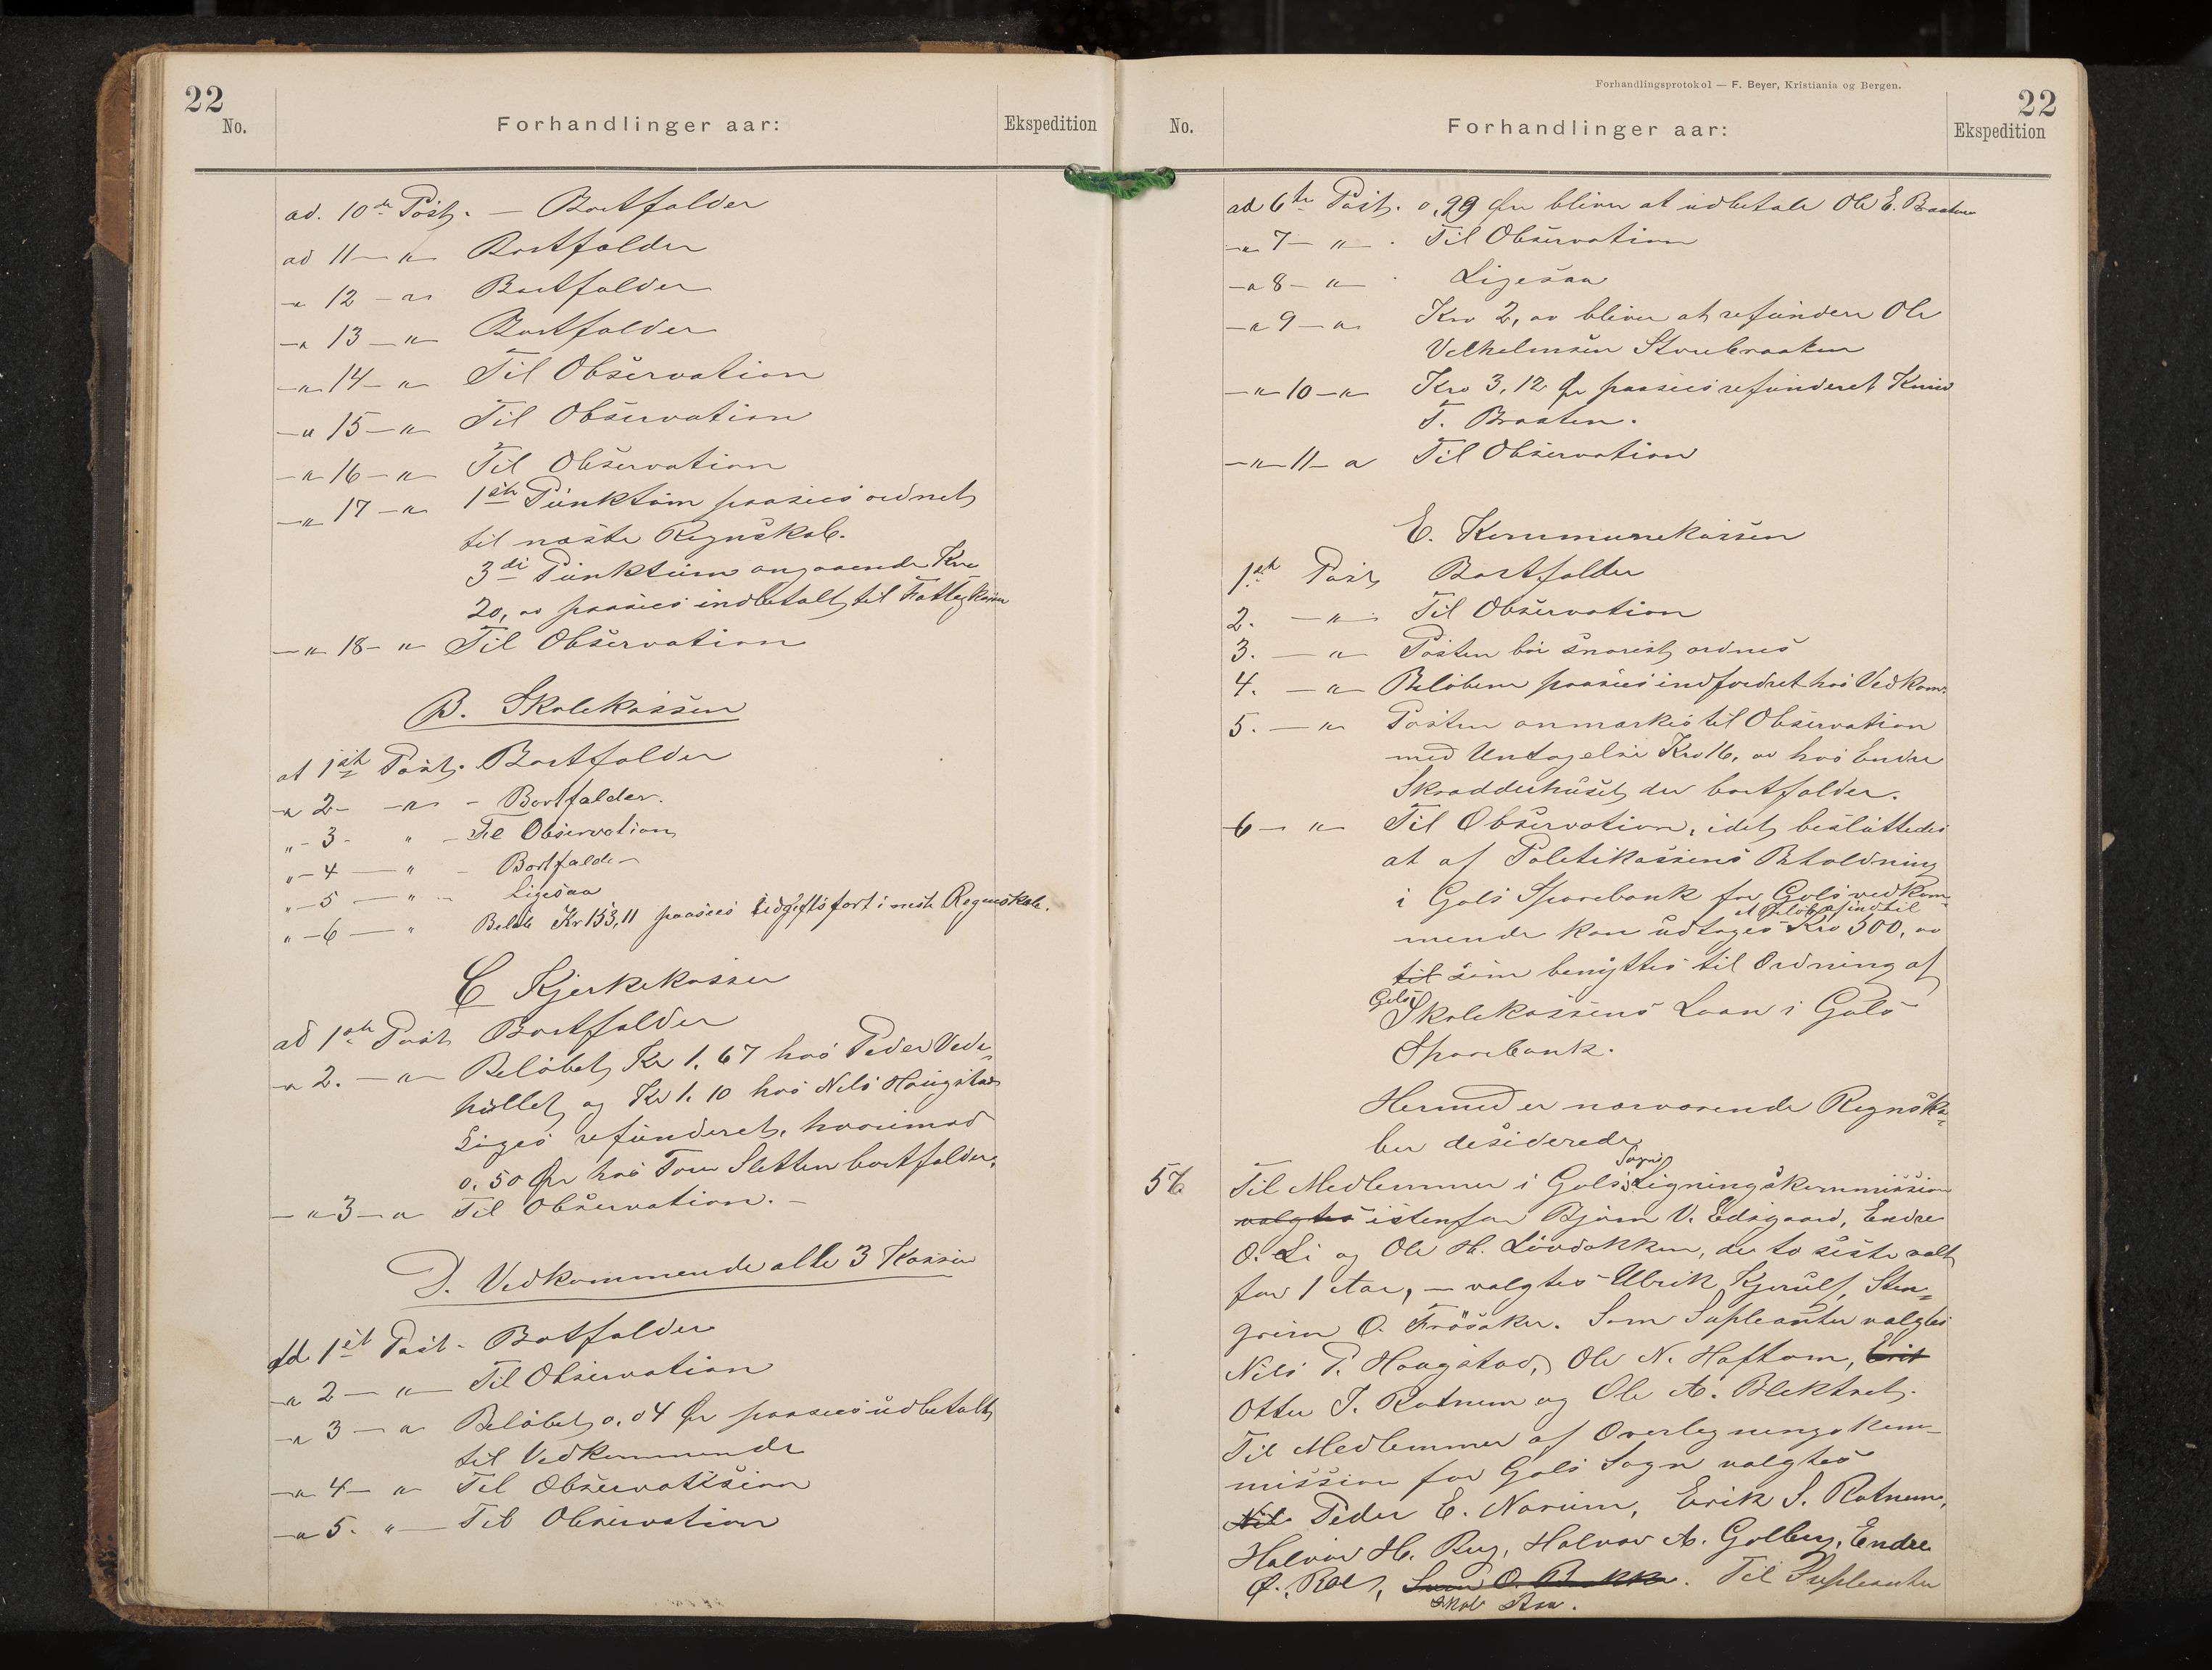 22
No.
Forhandlinger aar:
Ekspedition
ad. 10de Post. — Bortfalder
ad 11 — " — Bortfalder
— " 12 — " Bortfalder
— " 13 — " Bortfalder
— " 14 — " Til Observation
— " 15 — " Til Observation
— " 16 — " Til Observation
— " 17 — " 1ste Punktum paasees ordnet
til næste Regnskab.
3die Punktum angaaende Kro
20,00 paasees indbetalt til Fattigkassen
— " 18 — " Til Observation
B. Skolekassen
at 1ste Post. Bortfalder
— " 2 — " — Bortfalder.
" — 3 — " — Til Observation
" — 4 — " — Bortfalder
" — 5 — " — Ligesaa
" — 6 — " Beløb Kr 153,11 paasees Udgiftsført i neste Regnskab.
C Kjerkekassen
ad 1ste Post Bortfalder
— " 2. — " — Beløbet Kr 1.67 hos Peder Vede-
hullet og Kr 1.10 hos Nils Haugstad
Siges refunderet, hvorimod
0.50 Ør hos Tore Sletten bortfalder.
— " 3 — " Til Observation. —
D. Vedkommende alle 3 Kasser
ad 1ste Post - Bortfalder
— " 2 — " — Til Observation
— " 3 — " Beløbet 0.04 Ør paasees udbetalt
til Vedkommende
— " 4 — " Til Observatision
— " 5. " — Til Observation
Forhandlingsprotokol — F. Beyer, Kristiania og Bergen.
22
No.
Forhandlinger aar:
Ekspedition
ad 6te Post. 0,99 Øre bliver at udbetale Ole E. Braaten
— " 7 — " — . Til Observation
— " 8 — " — . Ligesaa
— " 9 — " Kro 2,00 bliver at refundere Ole
Velhelmsen Storebraaten
— " 10 — " Kro 3,12 Ør paasees refunderet Knud
T. Braaten.
— " 11 — " Til Observation
E. Kommunekassen
1ste Post Bortfalder
2. — " — Til Observation
3. — " Posten bør snarest ordnes
4. — " — Beløbene paasees indfordret hos Vedkom.
5. — " Posten anmærkes til Observation
med Undtagelse Kro 16,00 hos Endre
Skradderhuset der bortfalder.
6 — " Til Observation, idet besluttedes
at af Politikassens Beholdning
i Gols Sparebank for Gols vedkom-
et Beløb af indtil
mende kan udtages Kro 500,00
til som benyttes til Ordning af
Gols
Skolekassens Laan i Gols
Sparebank.
Hermed er nærværende Regnska-
ber desiderede
57.
Sogns
Til Medlemmer i Gols Ligningskommission
valgtes istenfor Bjørn V. Eidsgaard, Endre
O. Li og Ole H. Løvdokken, de to siste valt
for 1 Aar, — valgtes Ulrik Kjerulf, Sten-
grim O. Frøsaker. Som Supleanter valgtes
Nils P. Haugstad, Ole N. Haftom, Erik
Otter T. Rotnem og Ole A. Blektvet.
Til Medlemmer af Overlegningskom-
mission for Gols Sogn valgtes
Nils Peder E. Norum, Erik S. Rotnem,
Halvor H. Rug, Halvor A. Golberg, Endre
Ø. Rol, Svein O. Bakke. Til Supleanter